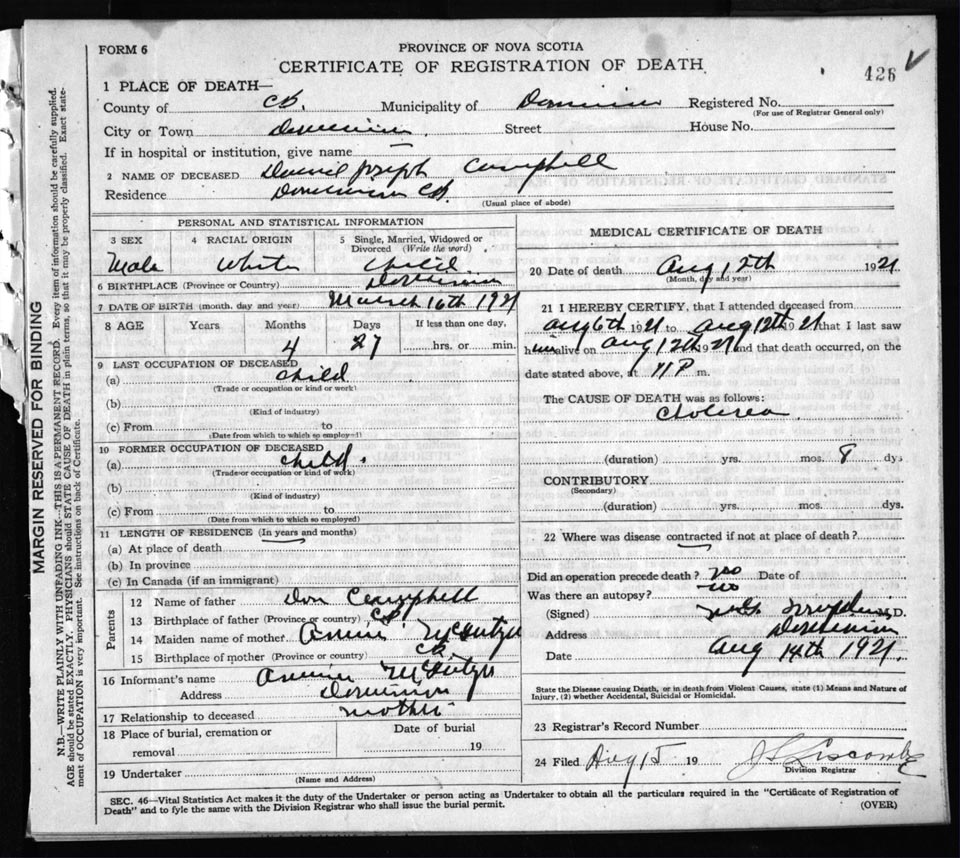 FORM 6
PROVINCE OF NOVA SCOTIA
CERTIFICATE OF REGISTRATION OF DEATH
426
1 PLACE OF DEATH—
County of C.B. Municipality of Dominion Registered No.
(For use of Registrar General only)
City or Town Dominion Street House No.
If in hospital or institution, give name
2 NAME OF DECEASED Daniel Joseph Campbell
Residence Dominion C.B.
(Usual place of abode)
PERSONAL AND STATISTICAL INFORMATION
3 SEX 4 RACIAL ORIGIN 5 Single, Married, Widowed or Divorced (Write the word)
Male White Child
6 BIRTHPLACE (Province or Country) Dominion
7 DATE OF BIRTH (month, day and year) March 16th 1921
8 AGE Years Months Days If less than one day,
4 27 hrs. or min.
9 LAST OCCUPATION OF DECEASED
(a) Child
(Trade or occupation or kind or work)
(b)
(Kind of industry)
(c) From to
(Date from which to which so employed)
10 FORMER OCCUPATION OF DECEASED
(a) Child.
(Trade or occupation or kind of work)
(b)
(Kind of industry)
(c) From to
(Date from which to which so employed)
11 LENGTH OF RESIDENCE (In years and months)
(a) At place of death
(b) In province
(c) In Canada (if an immigrant)
Parents
12 Name of father Don Campbell
13 Birthplace of father (Province or country) C.B.
14 Maiden name of mother Annie
15 Birthplace of mother (Province or country) C.B.
16 Informant's name Annie
Address Dominion
17 Relationship to deceased Mother
18 Place of burial, cremation or removal Date of burial
19
19 Undertaker
(Name and Address)
MEDICAL CERTIFICATE OF DEATH
20 Date of death Aug 12th 1921
(Month, day and year)
21 I HEREBY CERTIFY, that I attended deceased from
Aug 6th 1921 to Aug 12th 1921 that I last saw
him alive on Aug 12th 1921 and that death occurred, on the
date stated above, at 11 P m.
The CAUSE OF DEATH was as follows:
Cholerea
(duration) yrs. mos. 8 dys
CONTRIBUTORY
(Secondary)
(duration) yrs. mos. dys.
22 Where was disease contracted if not at place of death?
Did an operation precede death? no Date of
Was there an autopsy? no
(Signed) M.D.
Address Dominion
Date Aug 14th 1921.
State the Disease causing Death, or in death from Violent Causes, state (1) Means and Nature of
Injury, (2) whether Accidental, Suicidal or Homicidal.
23 Registrar's Record Number
24 Filed Aug 15 19 J S Liscombe
Division Registrar
SEC. 46—Vital Statistics Act makes it the duty of the Undertaker or person acting as Undertaker to obtain all the particulars required in the "Certificate of Registration of
Death" and to fyle the same with the Division Registrar who shall issue the burial permit.
(OVER)
MARGIN RESERVED FOR BINDING
N.B.—WRITE PLAINLY WITH UNFADING INK—THIS IS A PERMANENT RECORD. Every item of information should be carefully supplied.
AGE should be stated EXACTLY. PHYSICIANS should STATE CAUSE OF DEATH in plain terms, so that it may be properly classified. Exact state-
ment of OCCUPATION is very important. See instructions on back of Certificate.